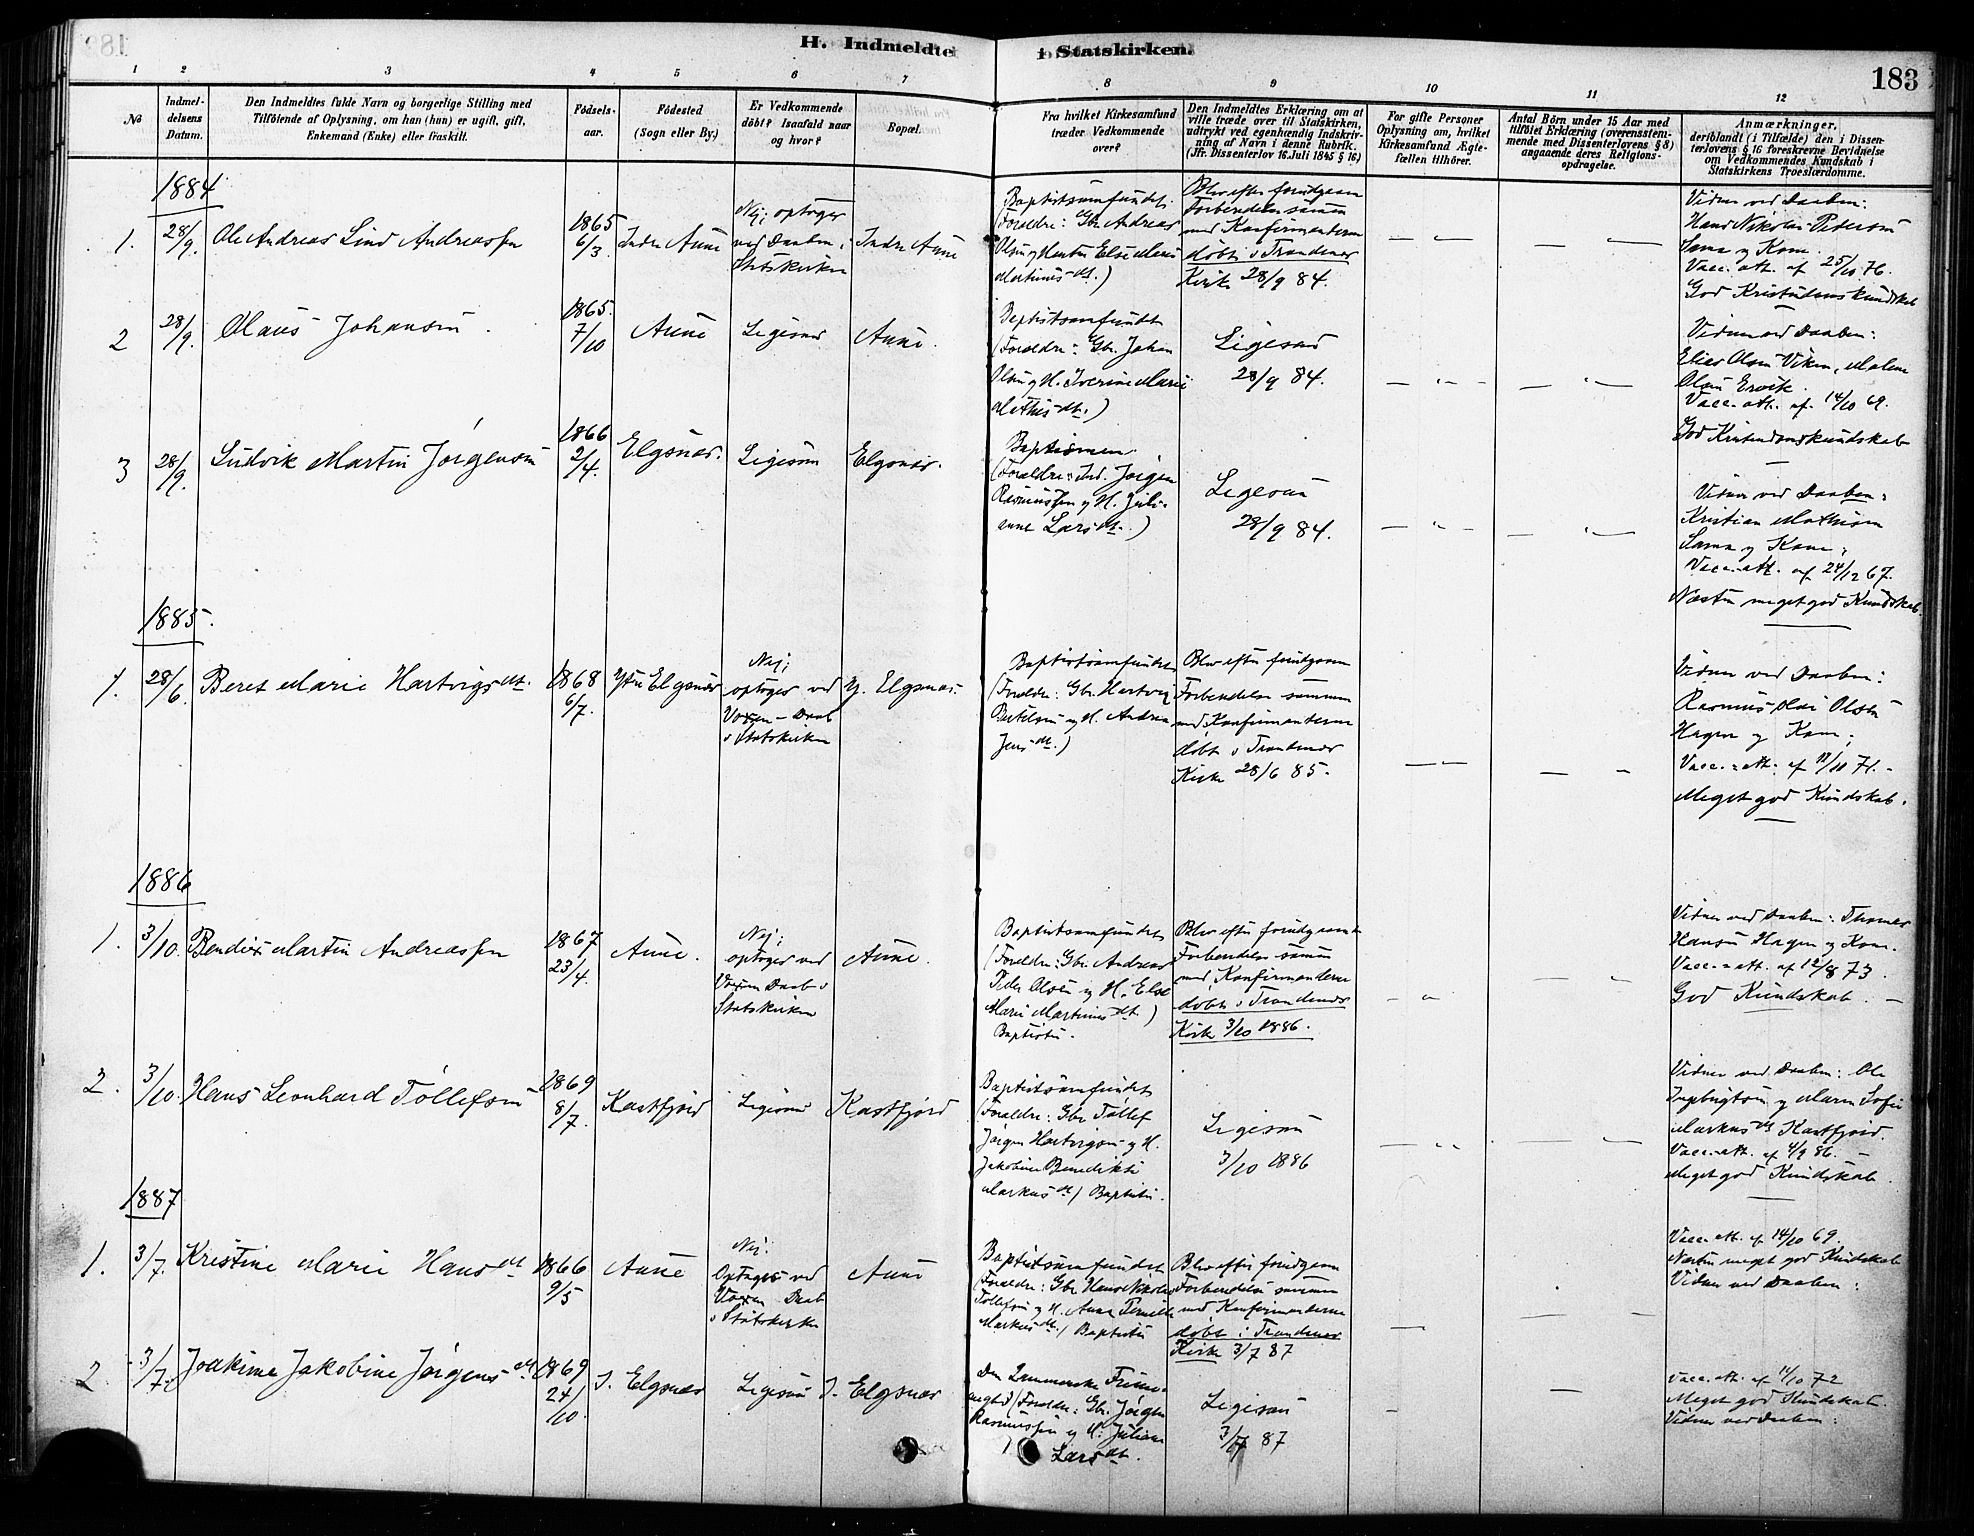 H. Indmeldte i Statskirken.
183
1 2 3 4 5 6 7 8 9 10 11 12
No
Indmel-
delsens
Datum.
Den Indmeldtes fulde Navn og borgerlige Stilling med
Tilföiende af Oplysning, om han (hun) er ugift, gift,
Enkemand (Enke) eller fraskilt.
Födsels-
aar.
Födested
(Sogn eller By.)
Er Vedkommende
döbt? Isaafald naar
og hvor?
Bopæl.
Fra hvilket Kirkesamfund
træder Vedkommende
over?
Den Indmeldtes Erklæring om at
ville træde over til Statskirken,
udtrykt ved egenhændig Indskriv-
ning af Navn i denne Rubrik.
(Jfr. Dissenterlov 16. Juli 1845 § 16)
For gifte Personer
Oplysning om, hvilket
Kirkesamfund Ægte-
fællen tilhörer.
Antal Börn under 15 Aar med
tilföiet Erklæring (overensstem-
mende med Dissenterlovens § 8)
angaaende deres Religions-
opdragelse.
Anmærkninger,
deriblandt (i Tilfælde) den i Dissen-
terlovens § 16 foreskrevne Bevidnelse
om Vedkommendes Kundskab i
Statskirkens Troeslærdomme.
1884
1. 28/9. Ole Andreas Lind Andreassen
1865
6/3.
Indre Aune
Nej; optoges
ved Daaben i
Statskirken
Indre Aune
Baptistsamfundet.
(Forældre: Gbr. Andreas
Olsen og Hustru Else Marie
Martinusdt.)
Blev efter forudgaaende
Forberedelse sammen
med Konfirmanterne
döbt i Trondenes
Kirke 28/9 84.
Vidner ved Daaben:
Hans Nikolai Pedersen
Sama og Kone.
Vacc. att. af 25/10 76.
God Kristendomskundskab
2 28/9. Olaus Johansen.
1865.
7/10
Aune
Ligesaa
Aune.
Baptistsamfundet
(Forældre: Gbr. Johan
Olsen og H. Iverine Marie
Mathisdt.)
Ligesaa
28/9 84.
Vidner ved Daaben:
Elias Olsen Viken, Malene
Olsen Ervik.
Vacc. att. af. 14/10 69.
God Kristendomskundskab
3 28/9. Ludvik Martin Jörgensen
1866
2/4.
Elgsnæs.
Ligesaa
Elgsnæs.
Baptismen.
(Forældre: Ind. Jörgen
Rasmussen og H. Juli-
anne Larsdt.)
Ligesaa
28/9 84.
Vidner ved Daaben:
Kristian Mathisen
Sama og Kone.
Vacc. att. af 24/12 67.
Næsten meget god Kundskab.
1885.
1. 28/6. Beret Marie Hartvigsdt.
1868
6/7.
Ytre Elgsnæs
Nej;
optoges ved
Voxen-Daab
i Statskirken
Y. Elgsnæs.
Baptistsamfundet
(Forældre: Gbr. Hartvig
Bertelsen og H. Andrea
Jensdt.)
Blev efter forudgaaende
Forberedelse sammen
med Konfirmanterne
döbt i Trondenes
Kirke 28/6 85.
Vidner ved Daaben:
Rasmus Olai Olsen
Hagen og Kone;
Vacc. att. af 11/11 71.
Meget god Kundskab.
1886
1. 3/10. Bendix Martin Andreassen
1867
23/4.
Aune.
Nej;
optoges ved
Voxen Daab i
Statskirken
Aune.
Baptistsamfundet
(Forældre: Gbr. Andreas
Peder Olsen og H. Else
Marie Martinusdt.)
Baptister.
Blev efter forudgaaende
Forberedelse sammen
med Konfirmanterne
döbt i Trondenes
Kirke 3/10 1886.
Vidner ved Daaben: Thomas
Hansen Hagen og Kone.
Vacc. att. af 12/8 73.
God Kundskab.
2. 3/10. Hans Leonhard Töllefsen
1869
8/7.
Kastfjord
Ligesaa
Kastfjord
Baptistsamfundet
(Forældre: Gbr. Töllef
Jörgen Hartvigsen og H.
Jakobine Benedikte
Markusdt) Baptister.
Ligesaa
3/10 1886
Vidner ved Daaben: Ole
Ingebrigtsen og Maren Sofie
Markusdt Kastfjord.
Vacc. att. af 4/9 86.
Meget god Kundskab.
1887
1. 3/7. Kristine Marie Hansdt
1866
9/5
Aune
Nej.
Optoges ved
Voxen Daab
i Statskirken
Aune
Baptistsamfundet
(Forældre: Gbr. Hans Nikolai
Töllefsen og H. Anne Pernille
Markusdt.) Baptister
Blev efter forudgaaende
Forberedelse sammen
med Konfirmanterne
döbt i Trondenes
Kirke 3/7 87
Vacc. att. af 14/10 69.
Næsten meget god Kundskab
Vidner ved Daaben:
2 3/7. Joakime Jakobine Jörgensdt
1869
24/10.
I. Elgsnæs
Ligesaa
I. Elgsnæs
Den Lammerske Frime-
nighed (Forældre: Gbr. Jörgen
Rasmussen og H. Juliane
Larsdt.)
Ligesaa
3/7 87
Vacc. att. af 14/10 72
Meget god Kundskab.
Vidner ved Daaben: